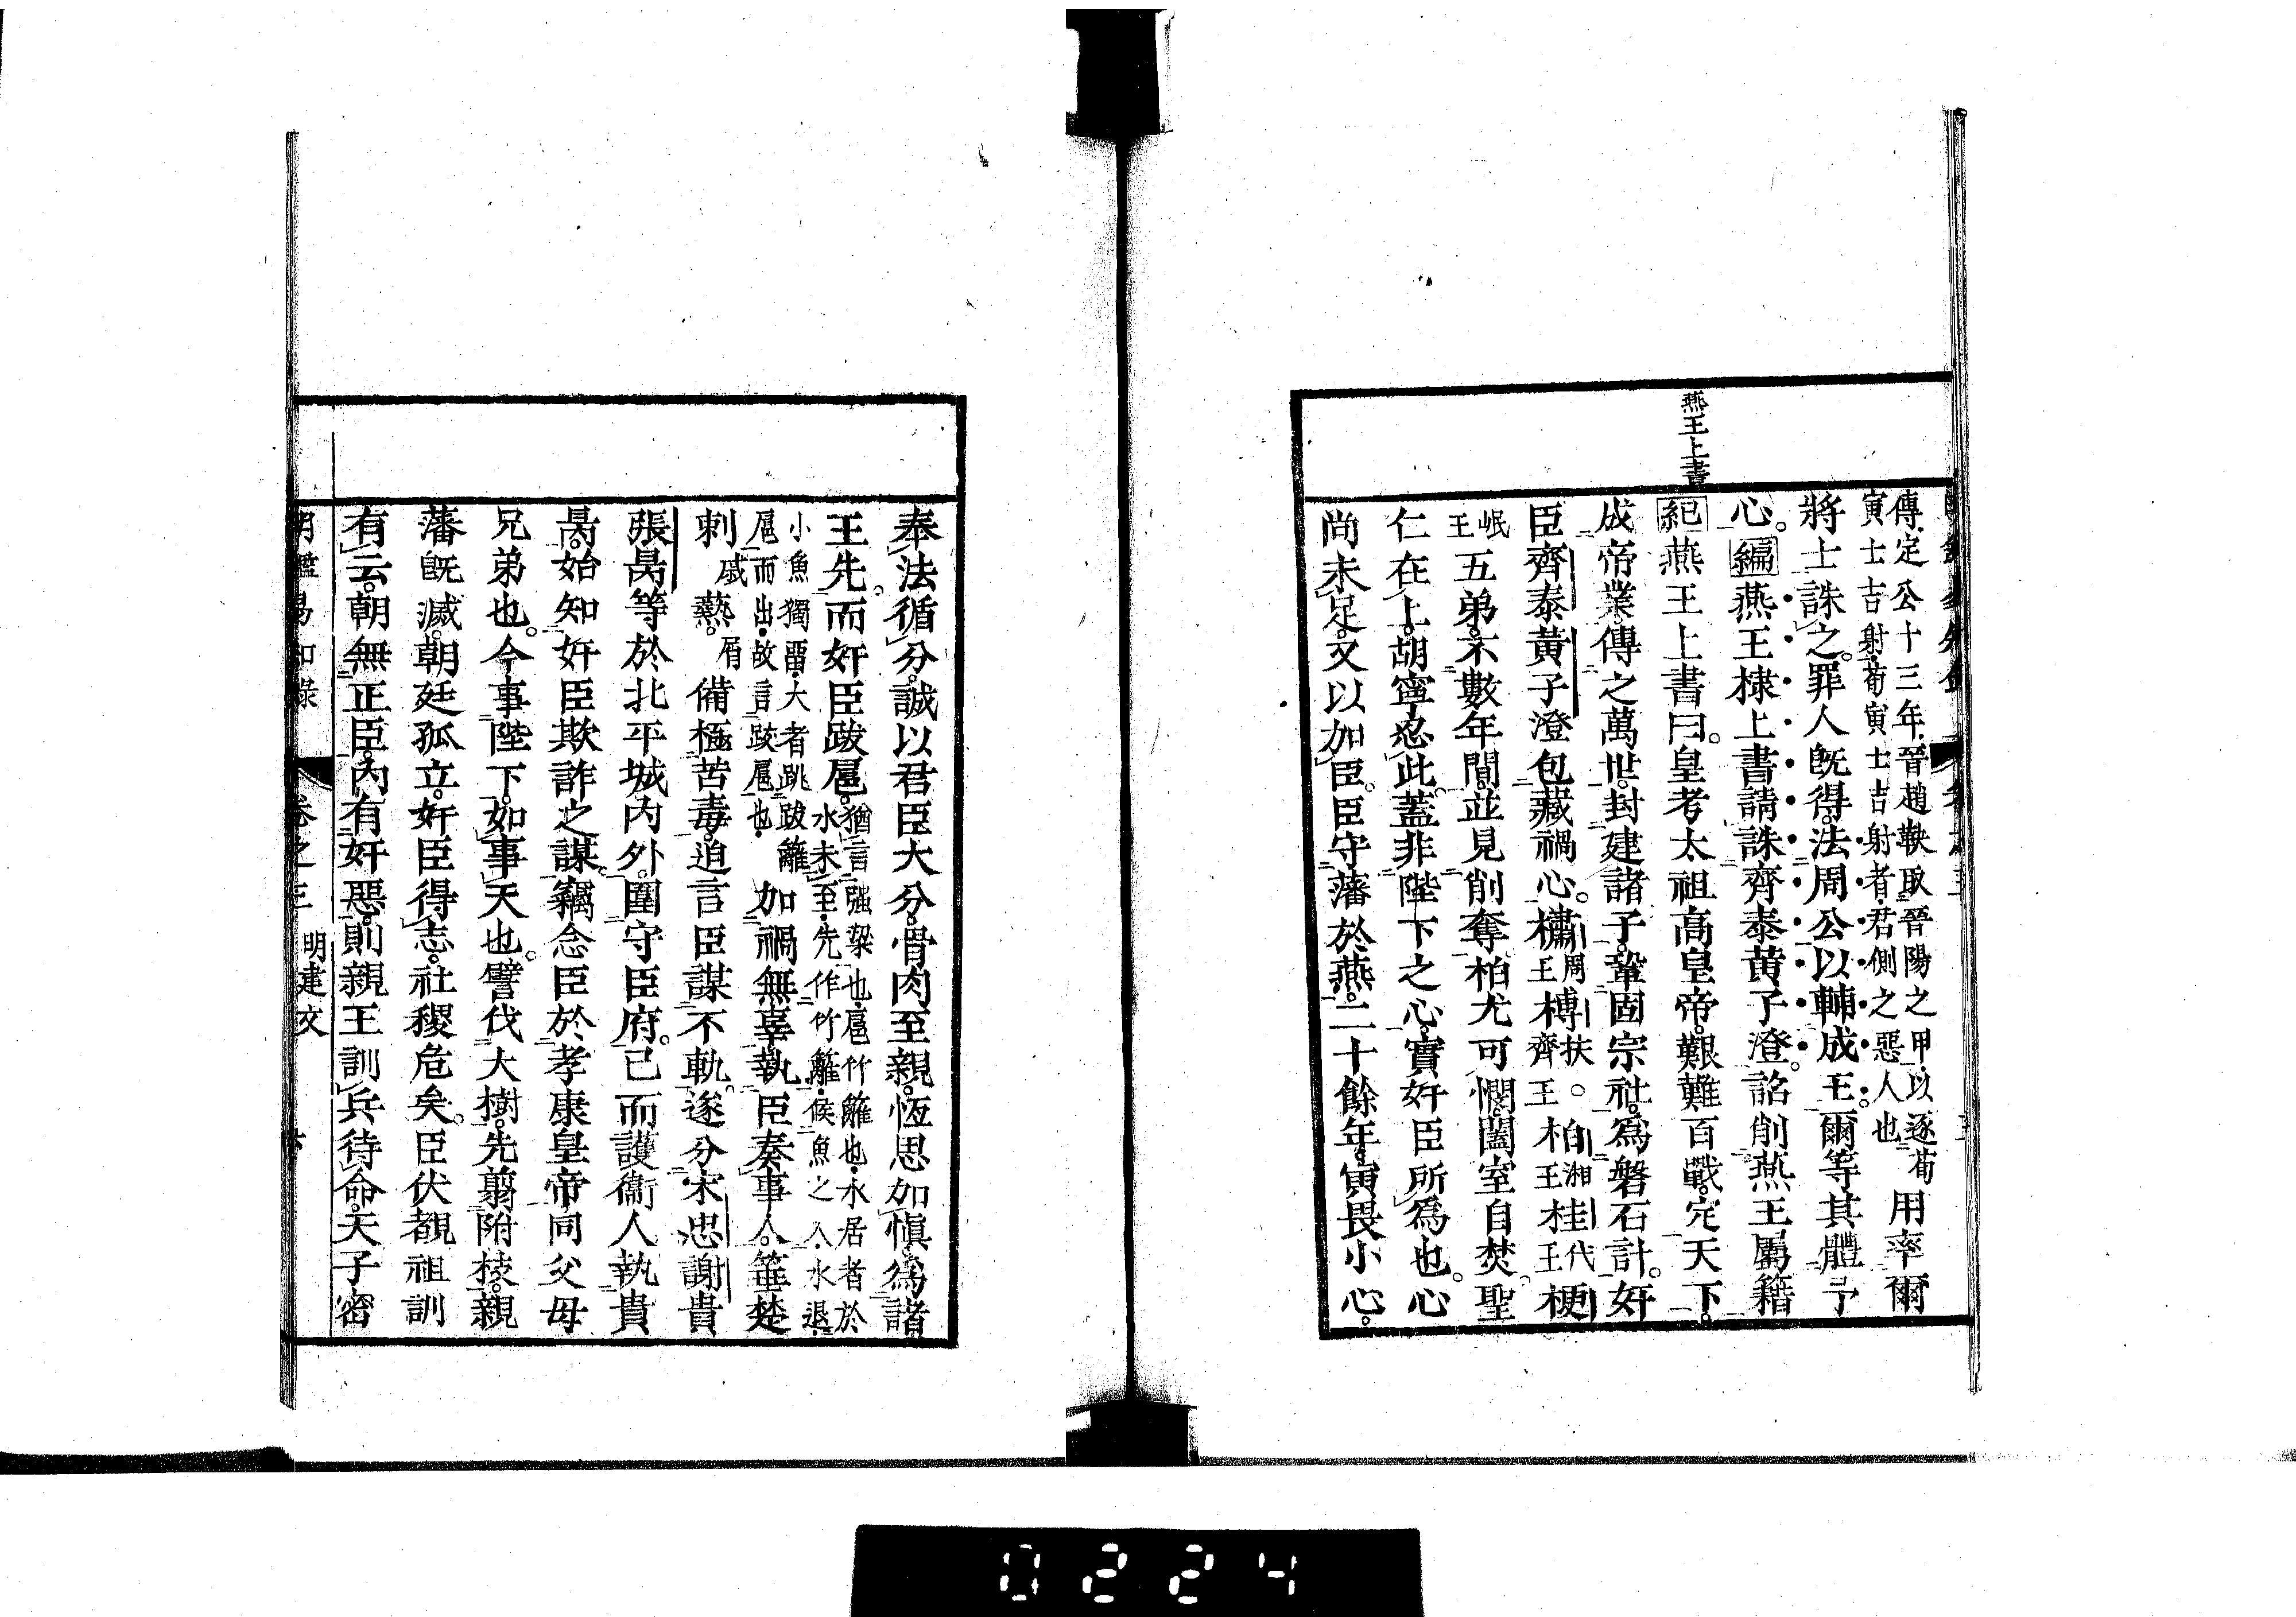 燕王上書
傳定公十三年晉趙鞅取晉陽之甲以逐荀
寅士吉射荀寅士吉射者君側之惡人也
用率爾
將士誅之罪人旣得法周公以輔成王爾等其體予
心。編燕王棣上書請誅齊泰黃子澄。詔削燕王屬籍
紀燕王上書曰。皇考太祖高皇帝。艱難百戰。定天下。
成帝業。傳之萬世。封建諸子。鞏固宗社。爲磐石計。奸
臣齊泰黃子澄包藏禍心。橚周王榑扶。齊王柏湘王桂代王楩
岷王五弟。不數年間。並見削奪。柏尤可憫。闔室自焚。聖
仁在上。胡寧忍此。蓋非陛下之心。實奸臣所爲也。心
尚未足。又以加臣。臣守藩於燕。二十餘年。寅畏小心。
奉法循分。誠以君臣大分。骨肉至親。恆思加愼。爲諸
王先。而奸臣跋扈。猶言强梁也。扈竹籬也。水居者於
水未至。先作竹籬。候魚之入。水退。
小魚獨畱。大者跳跋籬
扈而出。故言跋扈也。
加禍無辜。執臣奏事人。箠楚
刺戚爇屑。備極苦毒。迫言臣謀不軌。遂分宋忠謝貴
張昺等於北平城內外。圍守臣府。已而護衞人執貴
昺。始知奸臣欺詐之謀。竊念臣於孝康皇帝同父母
兄弟也。今事陛下。如事天也。譬伐大樹。先翦附枝。親
藩旣滅。朝廷孤立。奸臣得志。社稷危矣。臣伏覩祖訓
有云。朝無正臣。內有奸惡。則親王訓兵待命。天子密
明鑑易知錄
卷之三
明建文